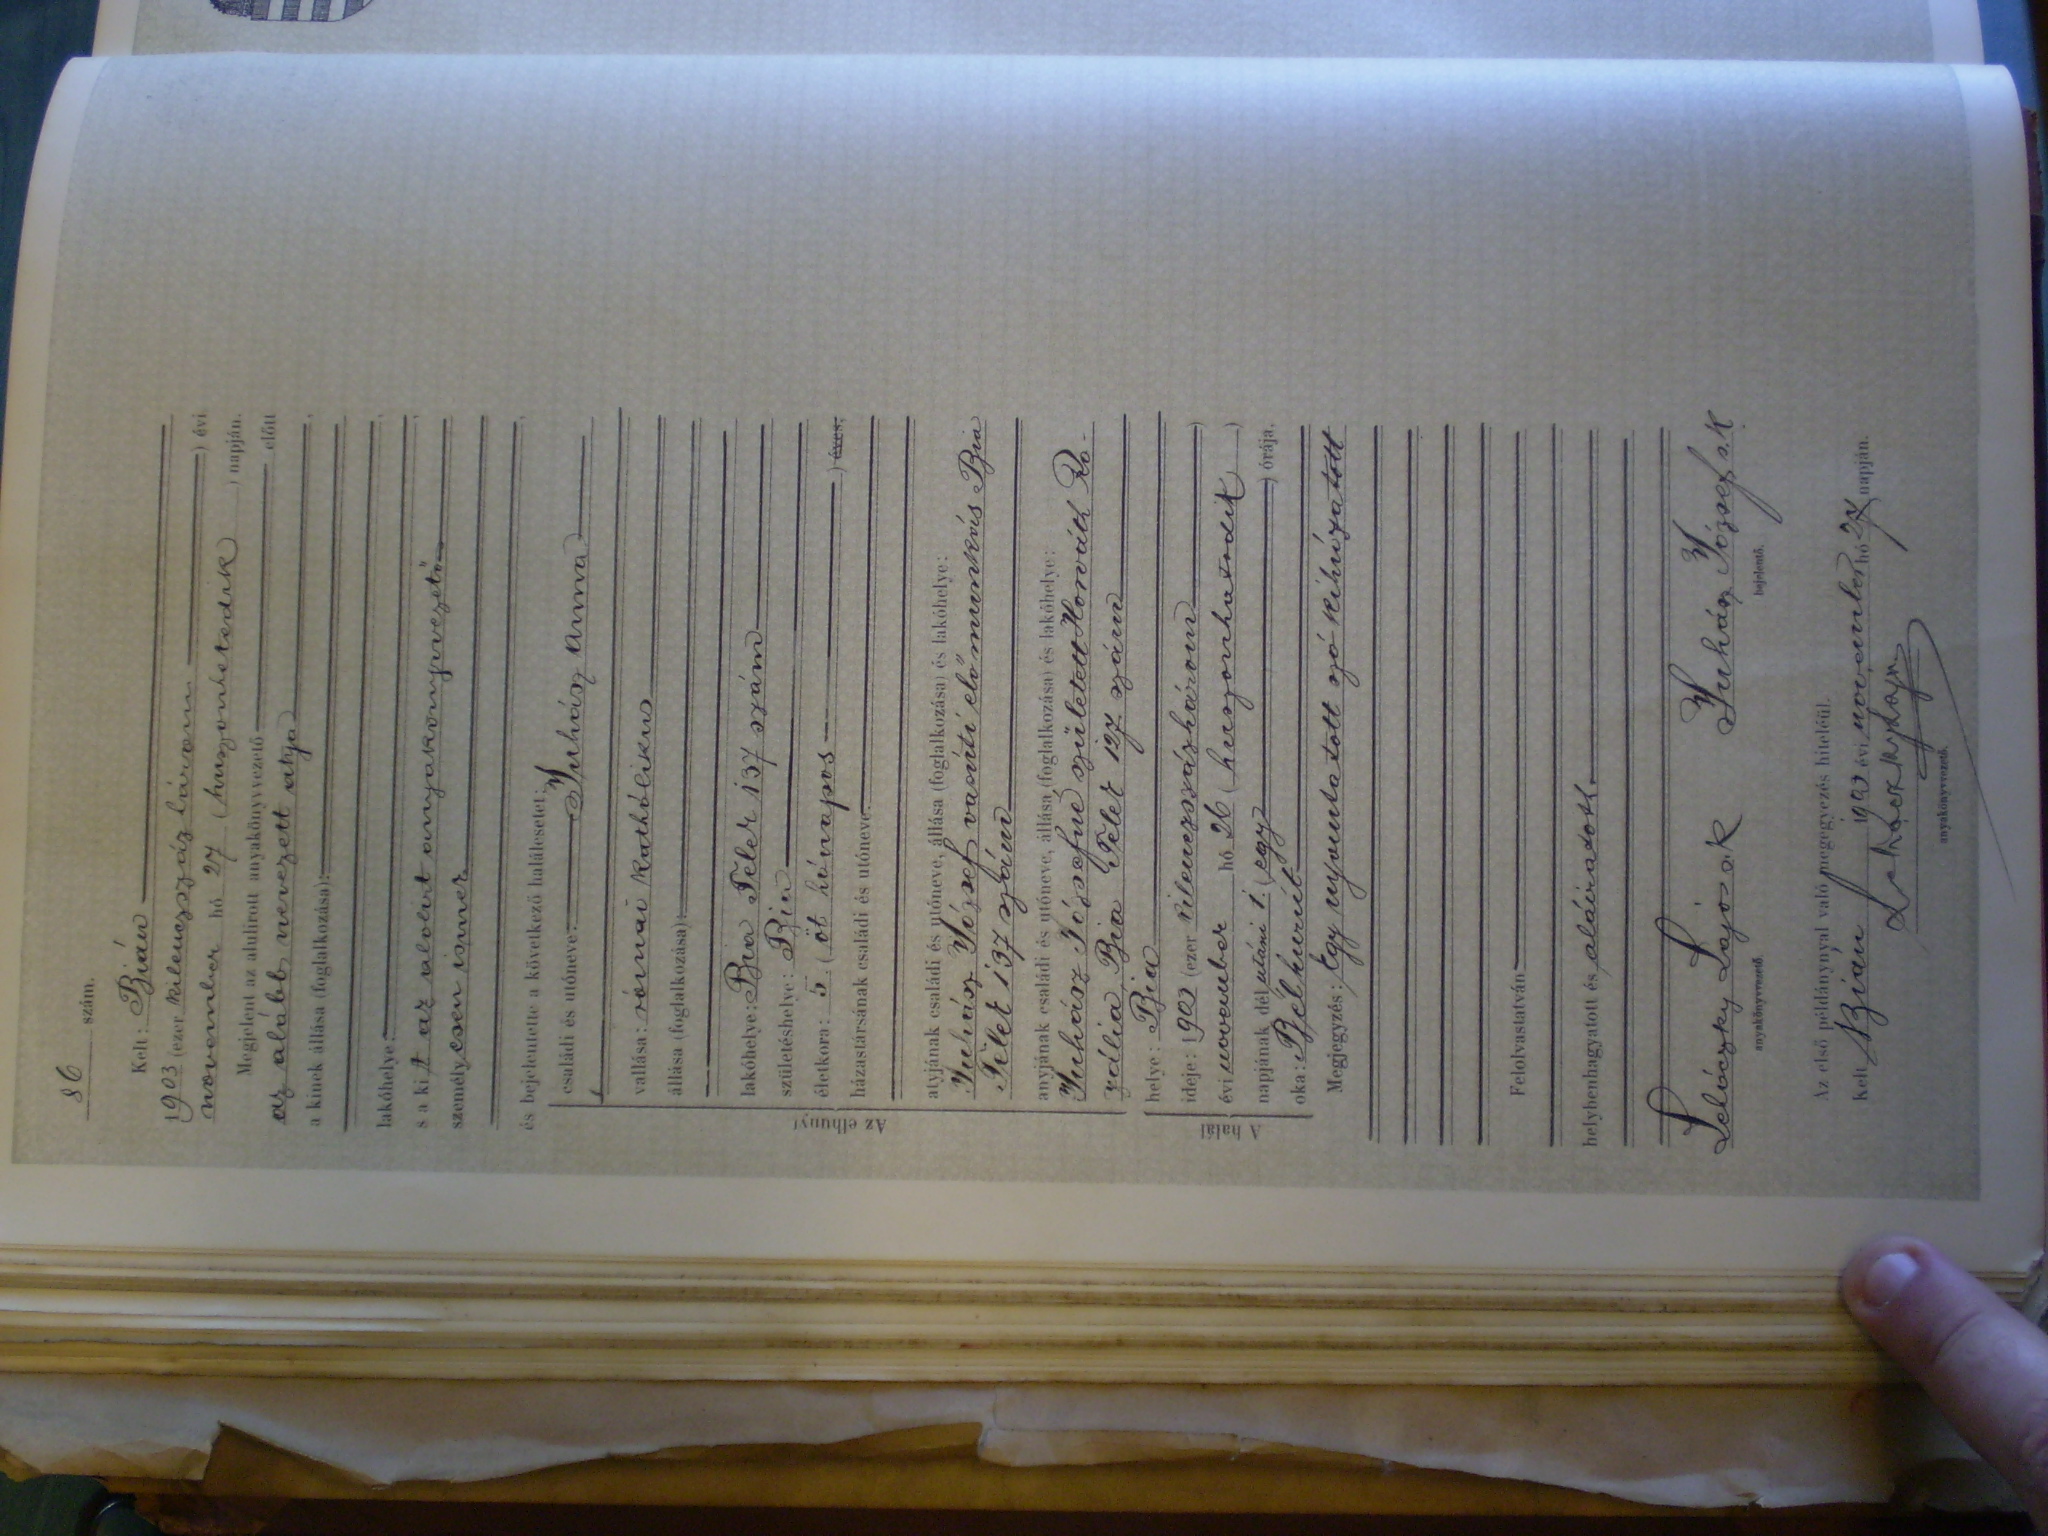 86 szám.
Kelt: Bián
1903 (ezer kilencszáz három ) évi
november hó 27 (huszonhetedik ) napján.
Megjelent az alulirott anyakönyvvezető előtt
az alább nevezett atya
a kinek állása (foglalkozása):
lakóhelye:
s a ki t az alolirt anyakönyvvezető
személyesen ismer
és bejelentette a következő halálesetet:
Az elhunyt
családi és utóneve: Juhász Anna
vallása: római katholikus
állása (foglalkozása):
lakóhelye: Bia Telek 137 szám
születéshelye: Bia
életkora: 5 (öt hónapos ) éves;
házastársának családi és utóneve
atyjának családi és utóneve, állása (foglalkozása) és lakóhelye:
Juhász József vasúti elő munkás Bia
Telek 137 szám
anyjának családi és utóneve, állása (foglalkozása) és lakóhelye:
Juhász Józsefné született Horváth Ro-
zália Bia Telek 127 szám
A halál
helye: Bia
ideje: 1903 (ezer kilencszázhárom )
évi november hó 26 (huszonhatodik )
napjának dél utáni 1. (egy ) órája.
oka: Bélhurut
Megjegyzés: Egy nyomtatott szó kihúzatott
Felolvastatván
helybenhagyatott és aláiratott
Lehóczky Lajos s.k Juhász József s.k
anyakönyvvezető. bejelentő.
Az első példánynyal való megegyezés hiteléül.
Kelt Bián 1903 évi november hó 27 napján.
anyakönyvvezető.